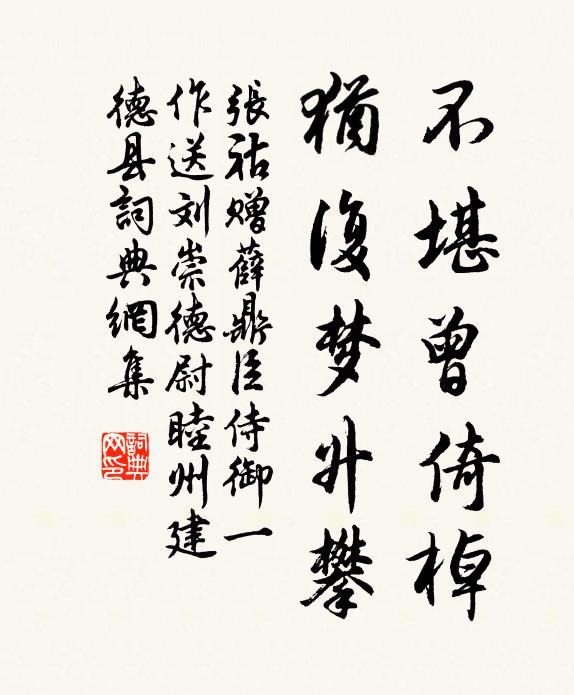 不堪曾倚棹
犹復梦升攀
張祜赠薛鼎臣侍御一
作送刘崇德尉睦州建
德县詞典網集
詞典网印